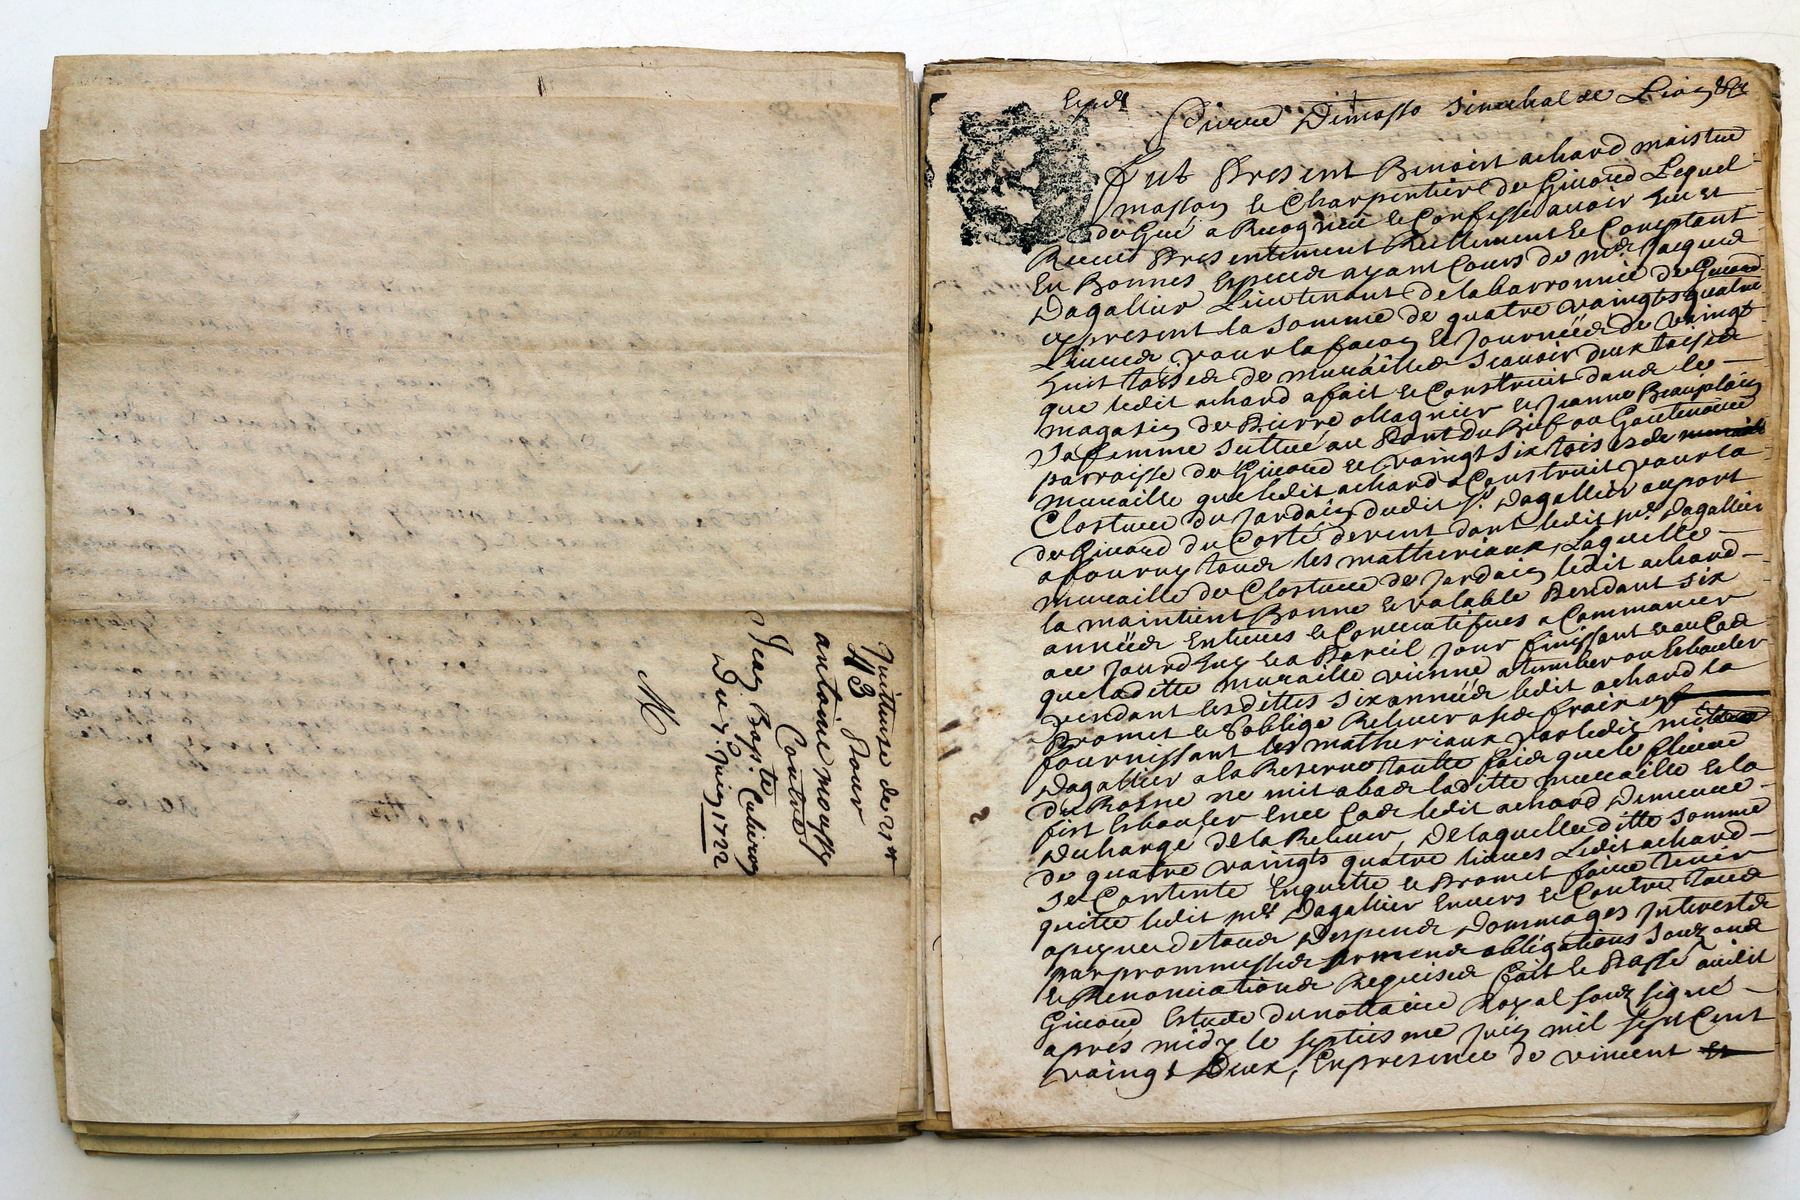 Quittuse de 
H 3
pour
antoine moussy
Contre
Jean Bapt.te Cusieroz
Du 7. Juin 1722
Pierre Dimasso Sinechal de Lion
Fut Present Benoist achard maistre
masson & Charpentier de Giuord Lequel
de Gré a Recogneü & Confesse auoir heu et
Receu Presentement Reellement & Comptant
En Bonnes Especes ayant Cours de Mr Jacques
Dagallier Lieutenant de la barronnie de Giuord
cy present la somme de quatre vaingts quatre
Liures pour la facon & Journeés de vaingt
huit toises de murailles Scauoir deux toises
que ledit achard a fait & Construit dans le
magasin de Pierre Magnier & Jeanne Beauplain
Sa femme Scittué au Pont Du Rief
parroisse de Giuord & vaingt six toises de
muraille que ledit achard a Construit pour la
Closture du Jardain dudit Sr. Dagallier au port
de Giuord du Costé de vent dont ledit Mr Dagallier
a fourny tous les matheriaux, Laquelle
muraille de Closture de Jardain ledit achard
la maintient Bonne & valable Pendant six
années Entieres & Consecutifues a Commancer
au Jourdhuy & a Pareil Jour finissant & au Cas
que ladite muraille vienne a tumber ou Esbouler
pendant lesdittes six années ledit achard la
Promet & S'oblige Releuer a ses fraix
fournissant les matheriaux par ledit
Dagallier a la Reserue toutte fois que le fleuue
du Rosne ne mit a bas laditte muraille & la
fist Esbouler En ce Cas ledit achard Demeure
Decharge de la Releuer, De laquelle ditte somme
de quatre vaingts quatre liures Ledit achard
se Contente En quitte & Promet faire tenir
quitte ledit Mr Dagallier Enuers & Contre tous
a peyne de tous Despens Dommages Interests
par prommesses sermens obligations
& Renonciations Requises fait & Passé audit
Giuord Estude du nottaire Royal souz signé
aprés midy le septiesme Juin mil sept Cent
vaingt Deux, En presence de vincent